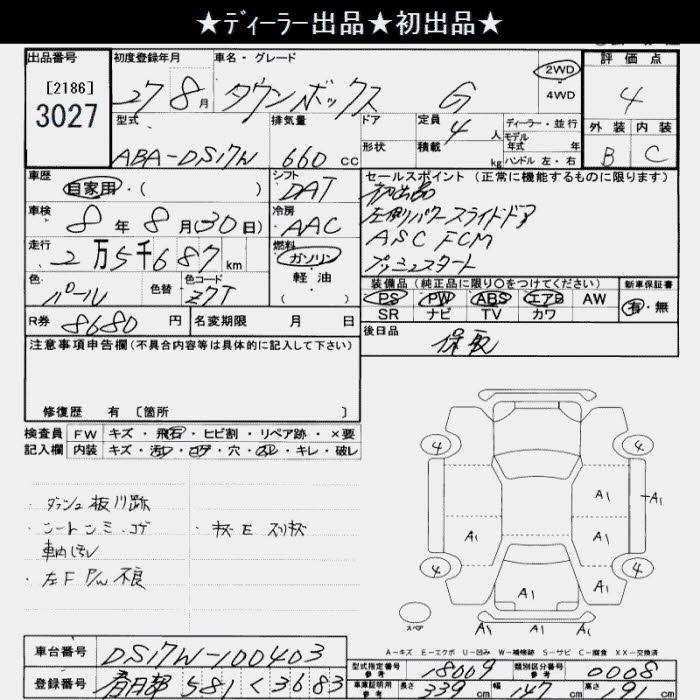 ★ディーラー出品★初出品★
出品番号 初度登録年月 車名・グレード 2WD 4WD 評価点
[2186]
3027
27 8月 タウンボックス G 4
型式 排気量 ドア 定員 4人 ディーラー・並行 外装 内装
形状 積載 kg モデル年式 年 ハンドル 左・右
ABA-DS17W 660 cc B C
車歴 シフト セールスポイント (正常に機能するものに限ります)
自家用・( ) DAT 初出品
車検 冷房 左側パワースライドドア
8年 8月(30日) AAC ASC FCM
走行 燃料 プッシュスタート
2万5千687km ガソリン 軽油 ( )
色 色替 色コード 装備品(純正品に限り○をつけてください) 新車保証書
パール Z7T PS PW ABS エアB AW 有・無
SR ナビ TV カワ
R券 8680円 名変期限 月 日 後日品 保 取
注意事項申告欄(不具合内容等は具体的に記入して下さい)
修復歴 有 〔箇所 〕
検査員 FW キズ・飛石・ヒビ割・リペア跡・×要
記入欄 内装 キズ・汚レ・コゲ・穴・スレ・キレ・破レ
・ダッシュ板 川跡
・シートシミ コゲ ・キズ E スリキズ
車内汚レ
・左F P/W 不良
4 4 4 4
A1 A1 A1 A1 A1 A1 A1
スペア
A-キズ E-エクボ U-凹み W-補修跡 S-サビ C-腐食 XX-交換済
車台番号 DS17W-100403
型式指定番号 参考 18009 類別区分番号 参考 0008
登録番号 春日部 581 く 3683
車庫証明用 参考 長さ 339cm 幅 147cm 高さ cm